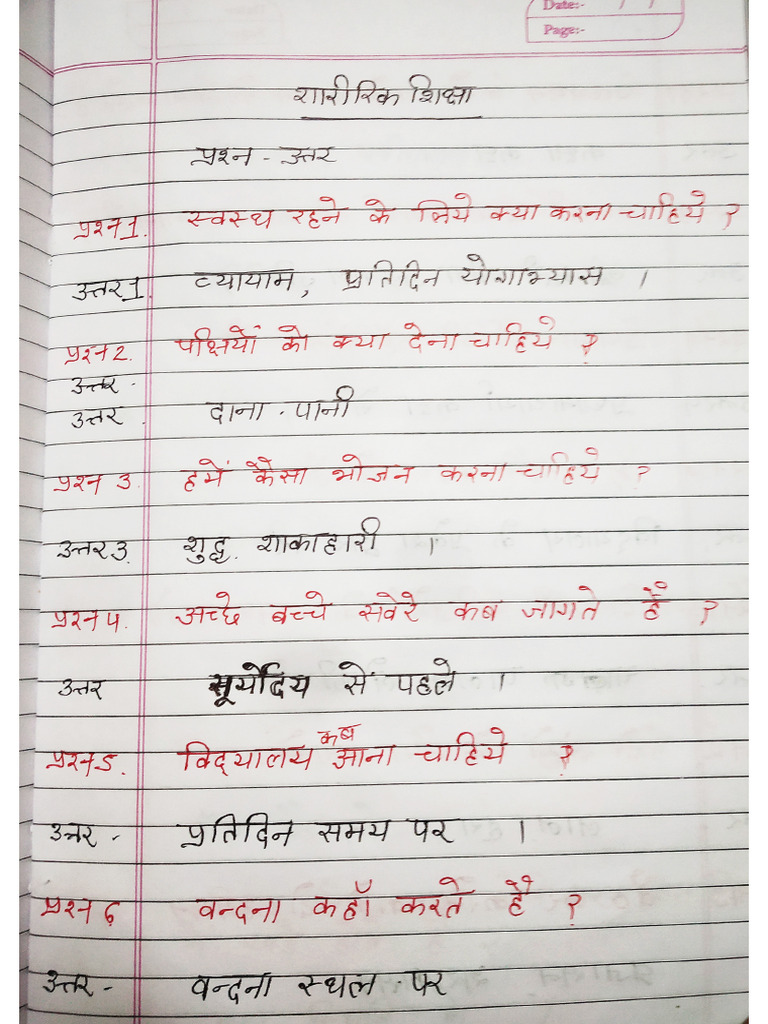 Date:- / /
Page:-
शारीरिक शिक्षा
प्रश्न - उत्तर
प्रश्न1. स्वस्थ रहने के लिये क्या करना चाहिये ?
उत्तर1. व्यायाम, प्रतिदिन योगाभ्यास ।
प्रश्न2. पक्षियों को क्या देना चाहिये ?
उत्तर.
उत्तर. दाना - पानी
प्रश्न 3. हमें कैसा भोजन करना चाहिये ?
उत्तर3. शुद्ध, शाकाहारी ।
प्रश्न 4. अच्छे बच्चे सवेरे कब जागते हैं ?
उत्तर सूर्योदय से पहले ।
प्रश्न5. विद्यालय कब आना चाहिये ?
उत्तर - प्रतिदिन समय पर ।
प्रश्न ६ वन्दना कहाँ करते हैं ?
उत्तर - वन्दना स्थल पर